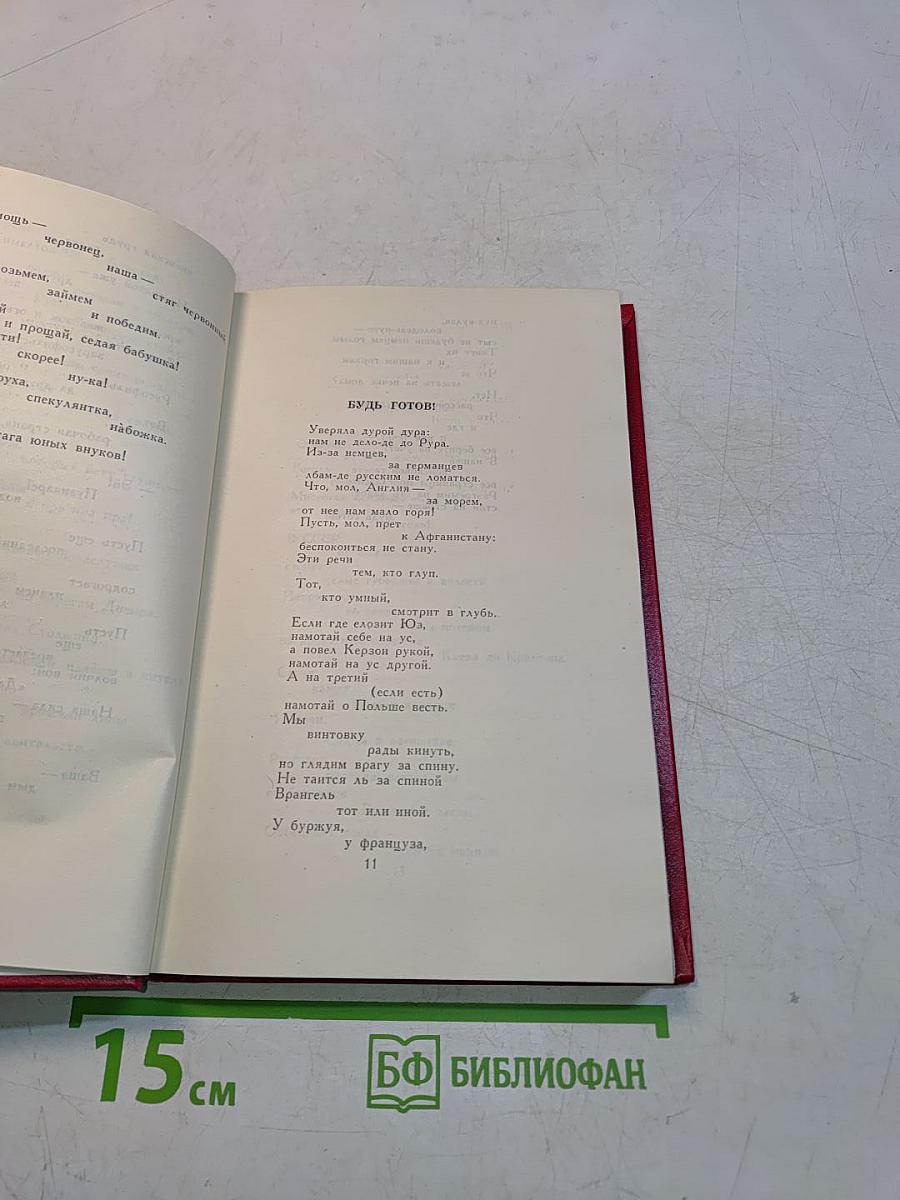 червонец,
наша —
стяг червонный
займем
и победим.
и прощай, седая бабушка!
скорее!
ну-ка!
спекулянтка,
набожка.
юных внуков!
БУДЬ ГОТОВ!
Уверяла дурой дура:
нам не дело-де до Рура.
Из-за немцев,
за германцев
лбам-де русским не ломаться.
Что, мол, Англия —
за морем,
от нее нам мало горя!
Пусть, мол, прет
к Афганистану:
беспокоиться не стану.
Эти речи
тем, кто глуп.
Тот,
кто умный,
смотрит в глубь.
Если где елозит Юз,
намотай себе на ус,
а повел Керзон рукой,
намотай на ус другой.
А на третий
(если есть)
намотай о Польше весть.
Мы
винтовку
рады кинуть,
но глядим врагу за спину.
Не таится ль за спиной
Врангель
тот или иной.
У буржуя,
у француза,
11
15 см
БФ БИБЛИОФАН